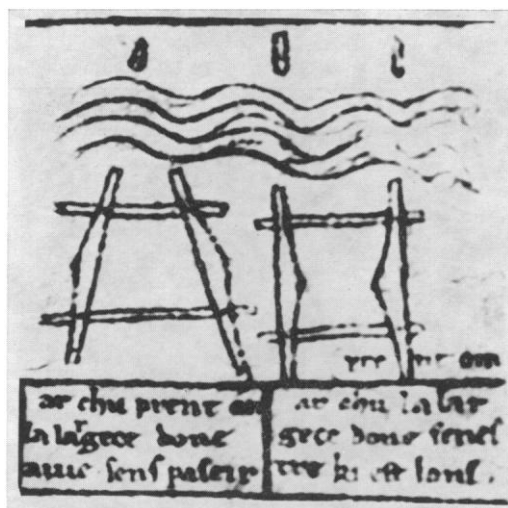 prent om
ar chu prent om
la largece done
aiue sens paseir
ar chu la lar
gece done fenes
tre ki est lons.